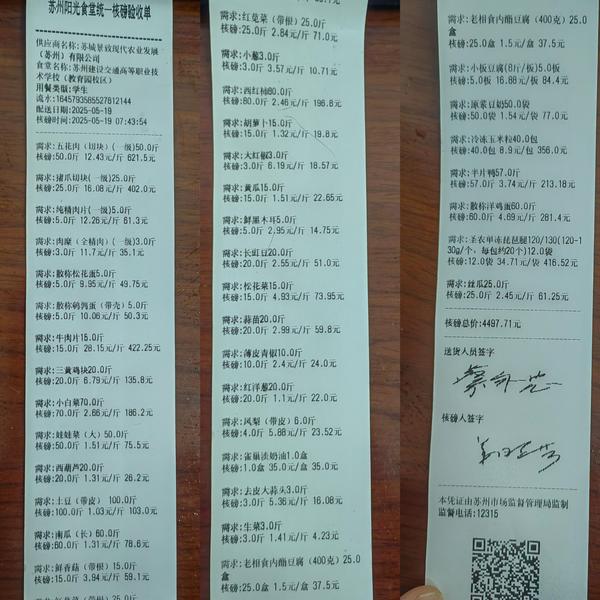 苏州阳光食堂统一核磅验收单
供应商名称:苏城景致现代农业发展
(苏州)有限公司
食堂名称:苏州建设交通高等职业技
术学校(教育园校区)
用餐类型:学生
流水:1645793585527812144
配送日期:2025-05-19
核磅时间:2025-05-19 07:43:54
需求:五花肉(切块)(一级)50.0斤
核磅:50.0斤 12.43元/斤 621.5元
需求:猪爪切块(一级)25.0斤
核磅:25.0斤 16.08元/斤 402.0元
需求:纯精肉片(一级)5.0斤
核磅:5.0斤 12.26元/斤 61.3元
需求:肉糜(全精肉)(一级)3.0斤
核磅:3.0斤 11.7元/斤 35.1元
需求:散称松花蛋5.0斤
核磅:5.0斤 9.95元/斤 49.75元
需求:散称鹌鹑蛋(带壳)5.0斤
核磅:5.0斤 10.06元/斤 50.3元
需求:牛肉片15.0斤
核磅:15.0斤 28.15元/斤 422.25元
需求:三黄鸡块20.0斤
核磅:20.0斤 6.79元/斤 135.8元
需求:小白菜70.0斤
核磅:70.0斤 2.66元/斤 186.2元
需求:娃娃菜(大)50.0斤
核磅:50.0斤 1.51元/斤 75.5元
需求:西葫芦20.0斤
核磅:20.0斤 1.31元/斤 26.2元
需求:土豆(带皮) 100.0斤
核磅:100.0斤 1.03元/斤 103.0元
需求:南瓜(长)60.0斤
核磅:60.0斤 1.31元/斤 78.6元
需求:鲜香菇(带根)15.0斤
核磅:15.0斤 3.94元/斤 59.1元
需求:红苋菜(带根)25.0斤
核磅:25.0斤 2.84元/斤 71.0元
需求:小葱3.0斤
核磅:3.0斤 3.57元/斤 10.71元
需求:西红柿80.0斤
核磅:80.0斤 2.46元/斤 196.8元
需求:胡萝卜15.0斤
核磅:15.0斤 1.32元/斤 19.8元
需求:大红椒3.0斤
核磅:3.0斤 6.19元/斤 18.57元
需求:黄瓜15.0斤
核磅:15.0斤 1.51元/斤 22.65元
需求:鲜黑木耳5.0斤
核磅:5.0斤 2.95元/斤 14.75元
需求:长豇豆20.0斤
核磅:20.0斤 2.55元/斤 51.0元
需求:松花菜15.0斤
核磅:15.0斤 4.93元/斤 73.95元
需求:蒜苗20.0斤
核磅:20.0斤 2.99元/斤 59.8元
需求:薄皮青椒10.0斤
核磅:10.0斤 2.4元/斤 24.0元
需求:红洋葱20.0斤
核磅:20.0斤 1.1元/斤 22.0元
需求:凤梨(带皮)6.0斤
核磅:4.0斤 5.88元/斤 23.52元
需求:雀巢淡奶油1.0盒
核磅:1.0盒 35.0元/盒 35.0元
需求:去皮大蒜头3.0斤
核磅:3.0斤 5.36元/斤 16.08元
需求:生菜3.0斤
核磅:3.0斤 1.41元/斤 4.23元
需求:老相食内酯豆腐(400克)25.0
盒
核磅:25.0盒 1.5元/盒 37.5元
需求:老相食内酯豆腐(400克)25.0
盒
核磅:25.0盒 1.5元/盒 37.5元
需求:小板豆腐(8斤/板)5.0板
核磅:5.0板 16.88元/板 84.4元
需求:原浆豆奶50.0袋
核磅:50.0袋 1.54元/袋 77.0元
需求:冷冻玉米粒40.0包
核磅:40.0包 8.9元/包 356.0元
需求:半片鸭57.0斤
核磅:57.0斤 3.74元/斤 213.18元
需求:散称洋鸡蛋60.0斤
核磅:60.0斤 4.69元/斤 281.4元
需求:圣农单冻琵琶腿120/130(120-1
30g/个，每包约20个)12.0袋
核磅:12.0袋 34.71元/袋 416.52元
需求:丝瓜25.0斤
核磅:25.0斤 2.45元/斤 61.25元
核磅总价:4497.71元
送货人员签字
核磅人签字
本凭证由苏州市场监督管理局监制
监督电话:12315